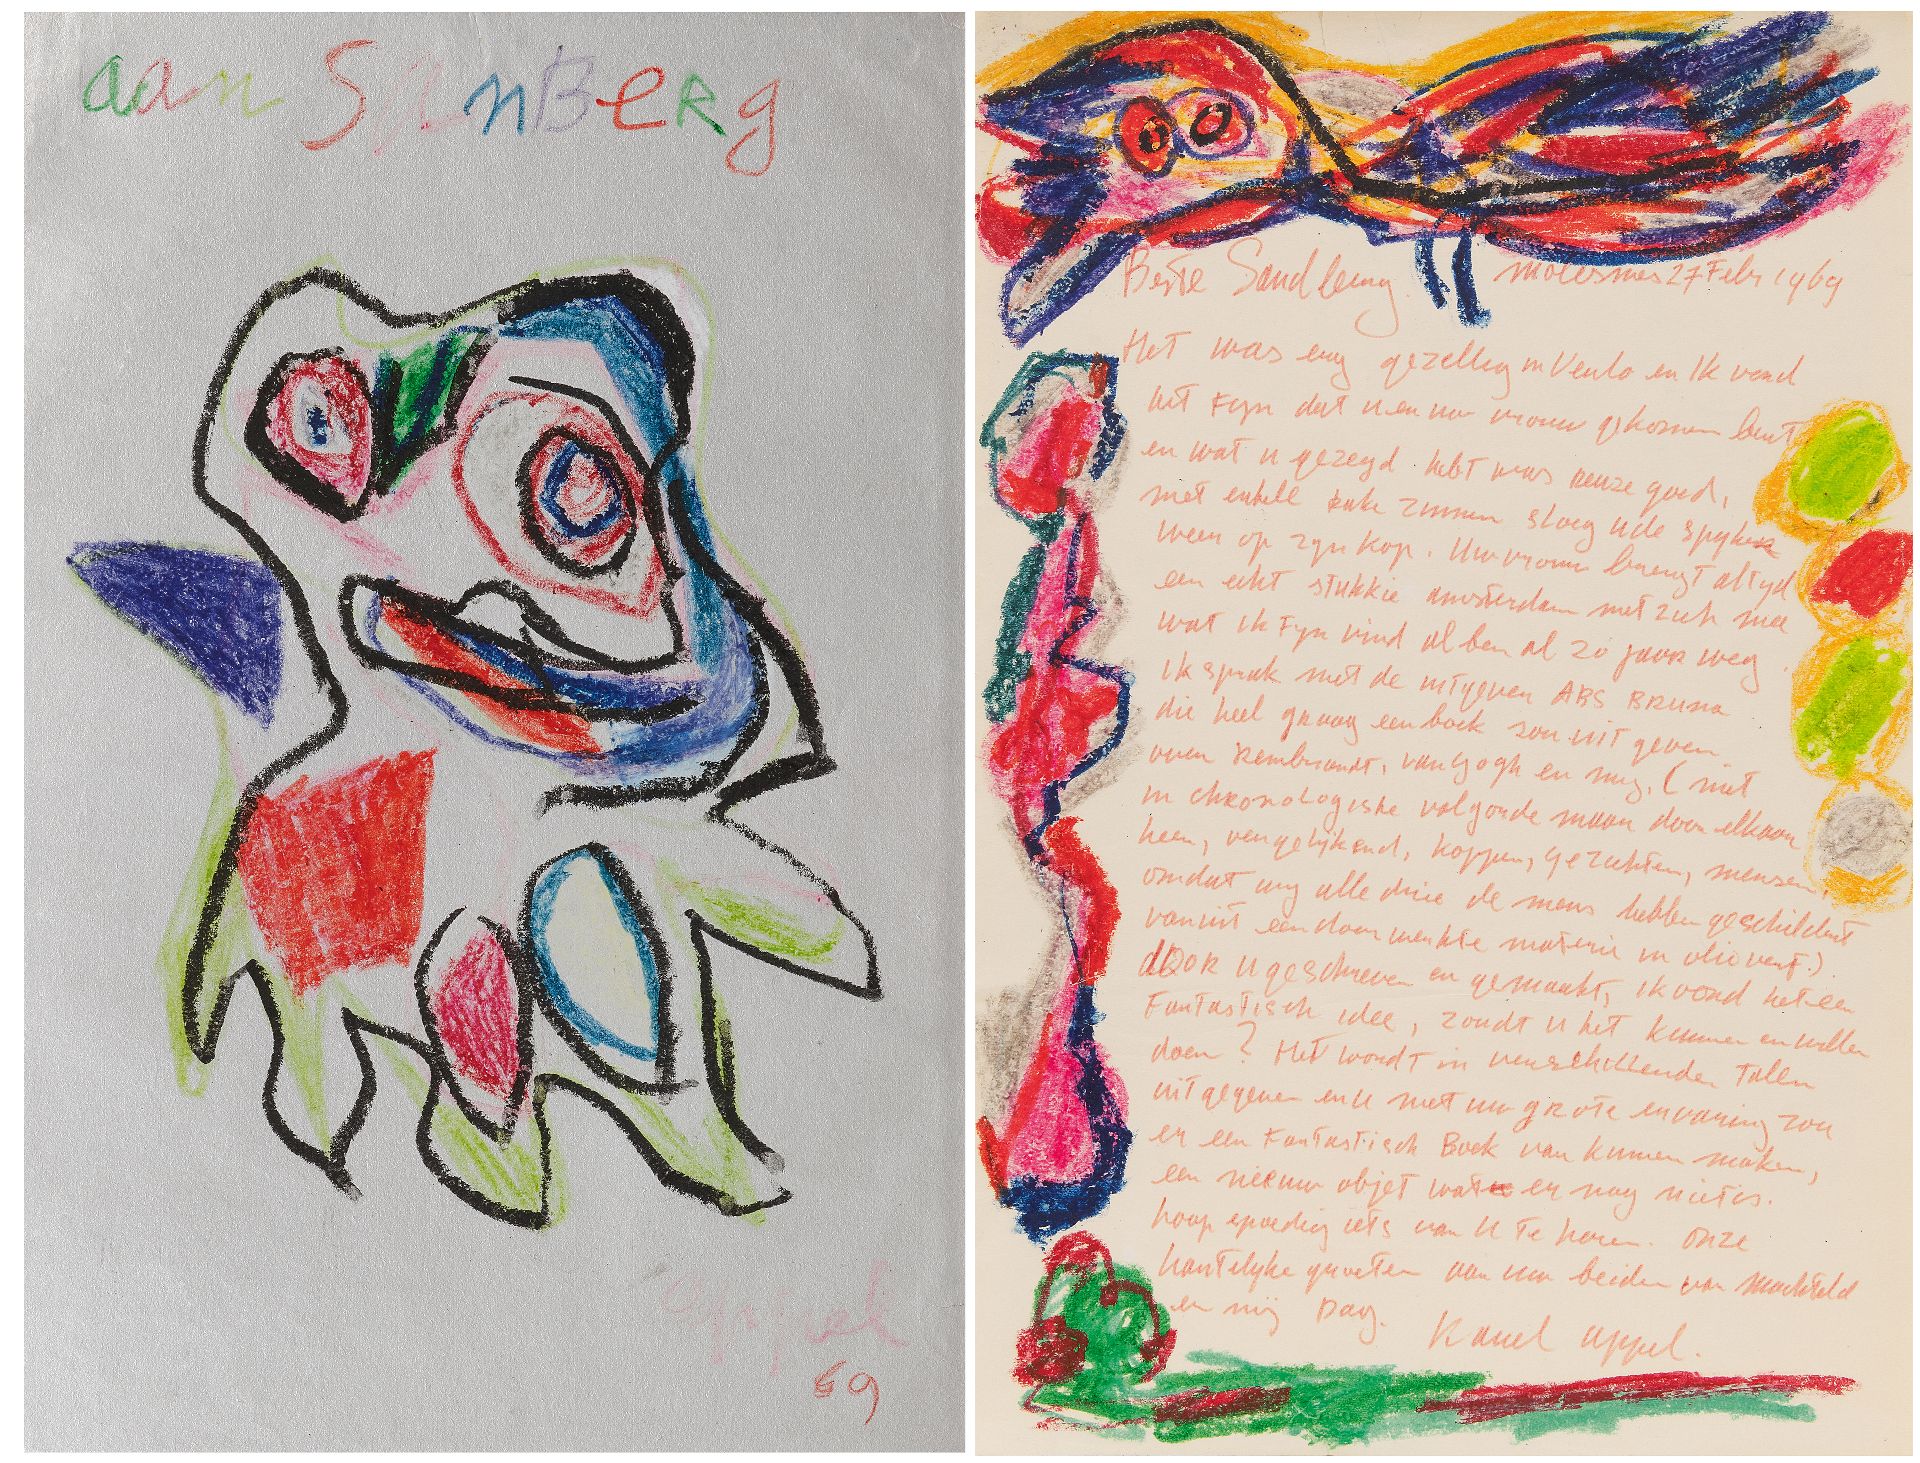 aan SAnBeRg
Appel
69
Beste Sandberg. Molesmes 27 Febr 1969
Het was erg gezellig in Venlo en Ik vond
het Fijn dat u en uw vrouw gekomen bent
en wat u gezegd hebt was reuze goed,
met enkele rake zinnen sloeg u de spijker
weer op zijn kop. Uw vrouw brengt altijd
een echt stukkie amsterdam met zich mee
wat ik Fijn vind al ben al 20 jaar weg.
Ik sprak met de uitgever ABS BRUNA
die heel graag een boek zou uit geven
over Rembrandt, van Gogh en mij, (niet
in chRonoLogische volgorde maar door elkaar
heen, vergelijkend, koppen, gezichten, mensen,
omdat wij alle drie de mens hebben geschildert
vanuit een doorwerkte materie in olieverf.)
dOOR u geschreven en gemaakt, ik vond het een
Fantastisch idee, zoudt u het kunnen en willen
doen? Het wordt in verschillenden Talen
uitgegeven en u met uw grote ervaring zou
er een Fantastisch Boek van kunnen maken,
een nieuw objet wat er nog niet is.
hoop spoedig iets van U te horen. Onze
hartelijke groeten aan uw beiden van Machteld
en mij Dag. Karel Appel.